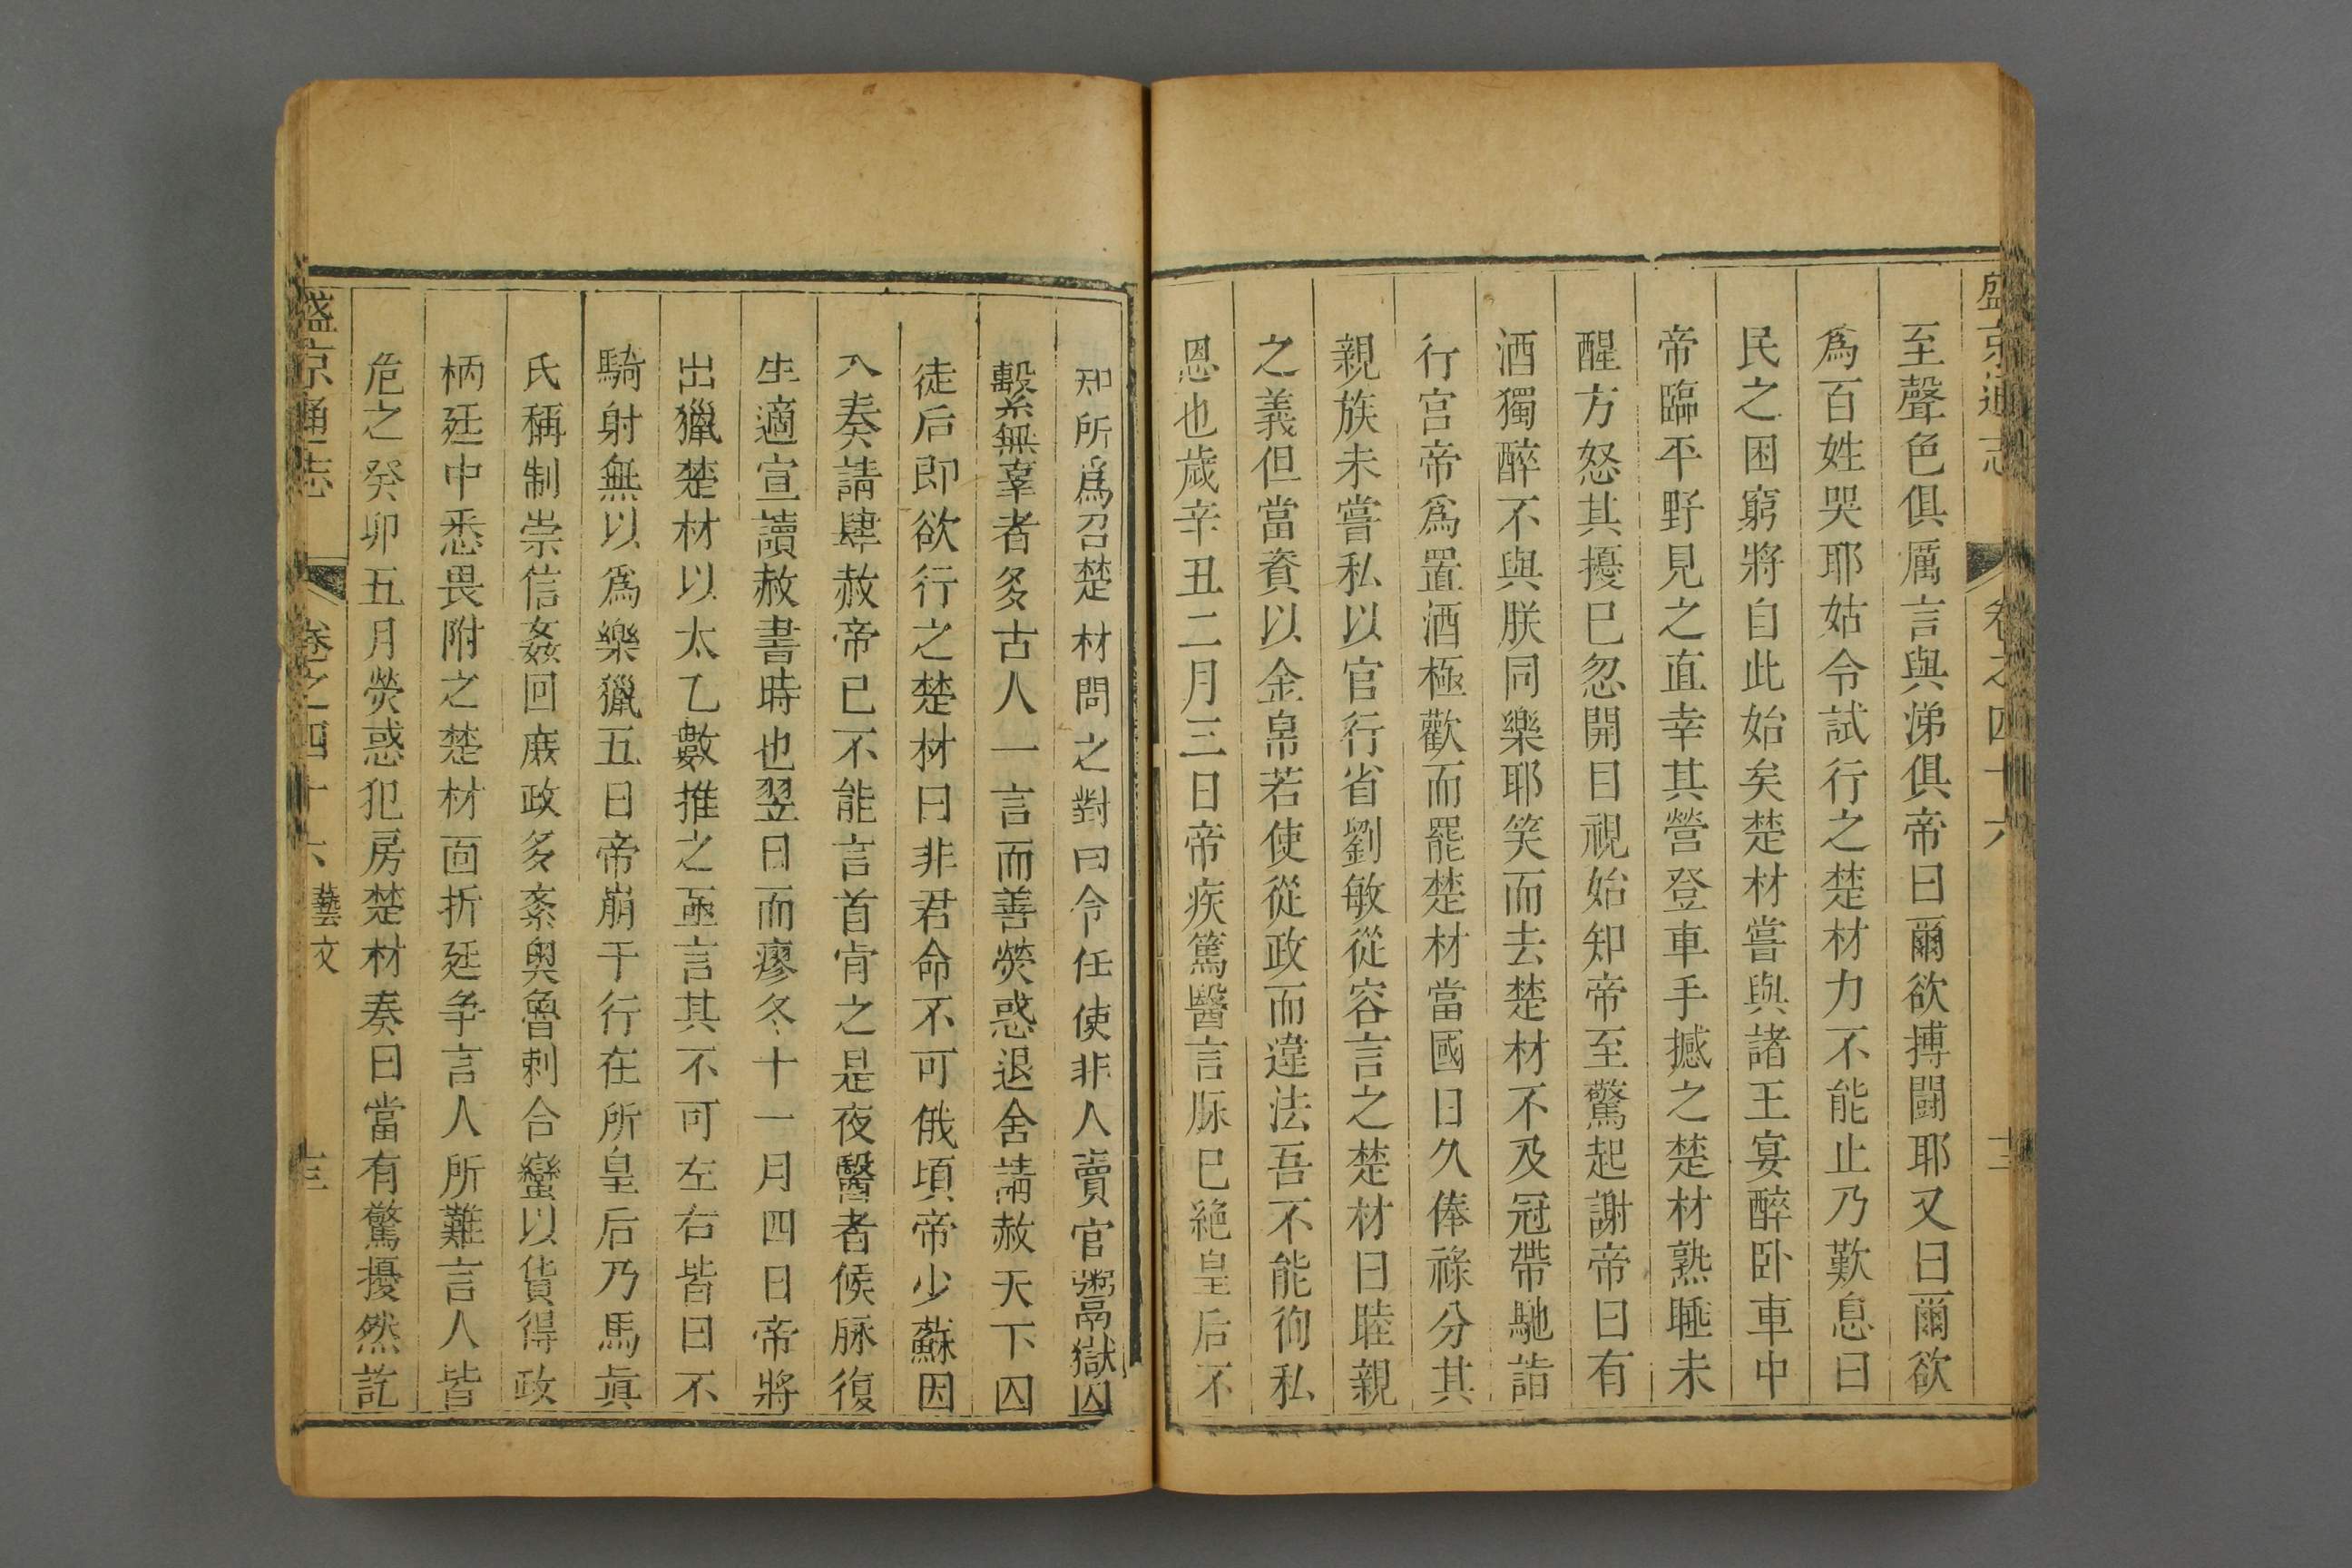 盛京通志 卷之四十六 十二
至聲色俱厲言與涕俱帝曰爾欲搏鬪耶又曰爾欲
爲百姓哭耶姑令試行之楚材力不能止乃歎息曰
民之困窮將自此始矣楚材嘗與諸王宴醉卧車中
帝臨平野見之直幸其營登車手撼之楚材熟睡未
醒方怒其擾巳忽開目視始知帝至驚起謝帝曰有
酒獨醉不與朕同樂耶笑而去楚材不及冠帶馳詣
行宮帝爲置酒極歡而罷楚材當國日久俸祿分其
親族未嘗私以官行省劉敏從容言之楚材曰睦親
之義但當資以金帛若使從政而違法吾不能徇私
恩也歲辛丑二月三日帝疾篤醫言脉巳絶皇后不
知所爲召楚材問之對曰今任使非人賣官鬻獄囚
繫無辜者多古人一言而善熒惑退舍請赦天下囚
徒后即欲行之楚材曰非君命不可俄頃帝少蘇因
入奏請肆赦帝已不能言首肯之是夜醫者候脉復
生適宣讀赦書時也翌日而瘳冬十一月四日帝將
出獵楚材以太乙數推之亟言其不可左右皆曰不
騎射無以爲樂獵五日帝崩于行在所皇后乃馬眞
氏稱制崇信姦回庶政多紊奧魯剌合蠻以貨得政
柄廷中悉畏附之楚材面折廷争言人所難言人皆
危之癸卯五月熒惑犯房楚材奏曰當有驚擾然訖
盛京通志 卷之四十六 藝文 十三